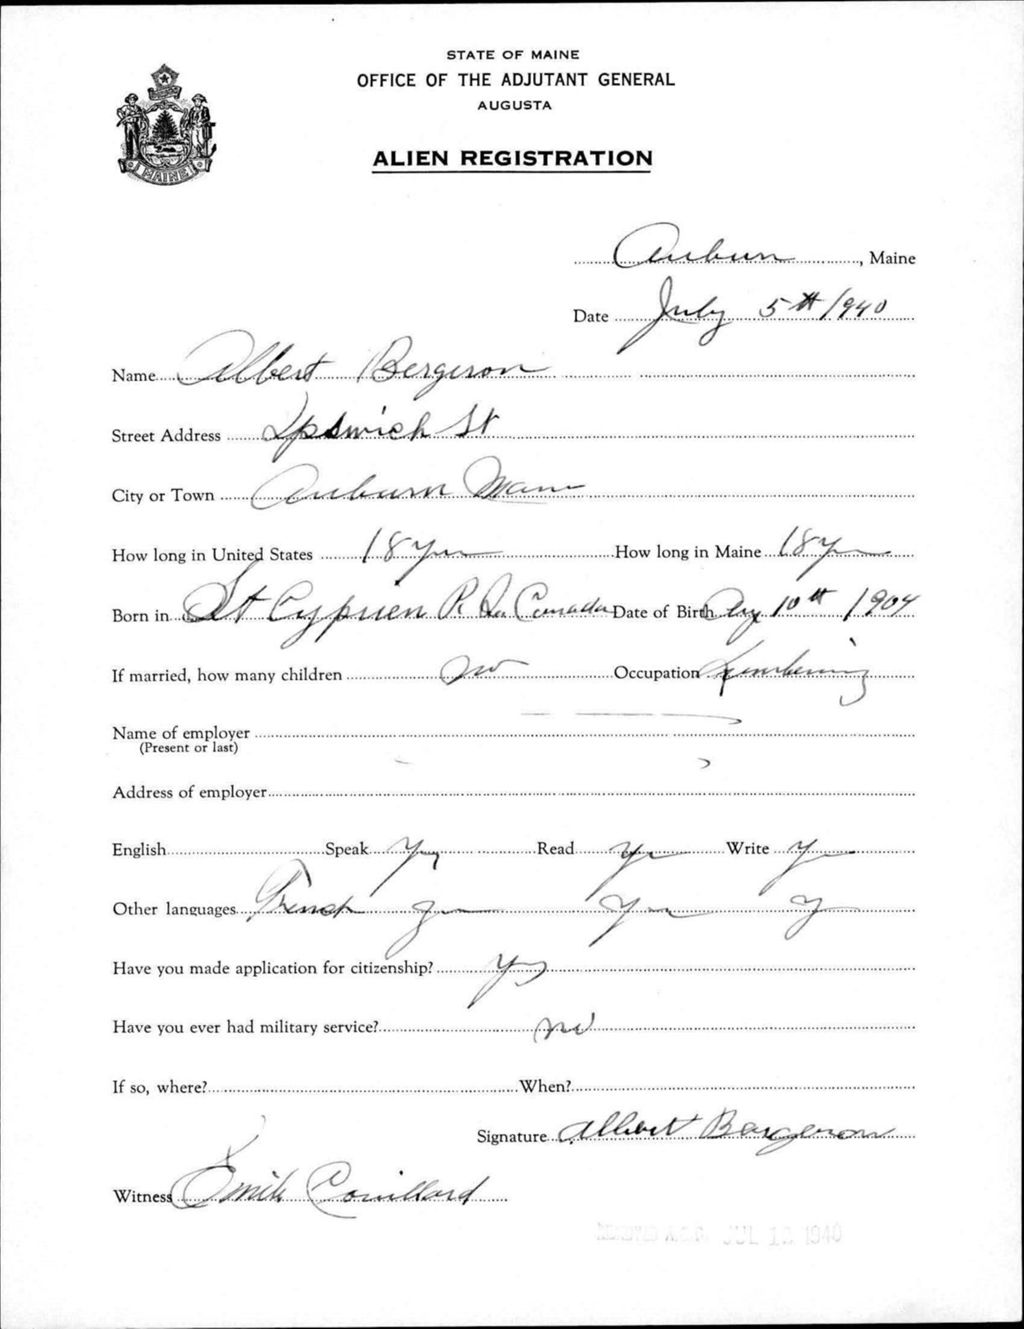 STATE OF MAINE
OFFICE OF THE ADJUTANT GENERAL
AUGUSTA
ALIEN REGISTRATION
MAINE
Auburn, Maine
Date July 5th 1940
Name Albert Bergeron
Street Address Ipswich St
City or Town Auburn Maine
How long in United States 18 yrs How long in Maine 18 yrs
Born in St Cyprien P. Q. Canada Date of Birth Aug 10th 1904
If married, how many children no Occupation
Name of employer
(Present or last)
Address of employer
English Speak Yes Read Yes Write Yes
Other languages French Yes Yes Y
Have you made application for citizenship? Yes
Have you ever had military service? no
If so, where? When?
Signature Albert Bergeron
Witness Emile Couillard
JUL 10 1940